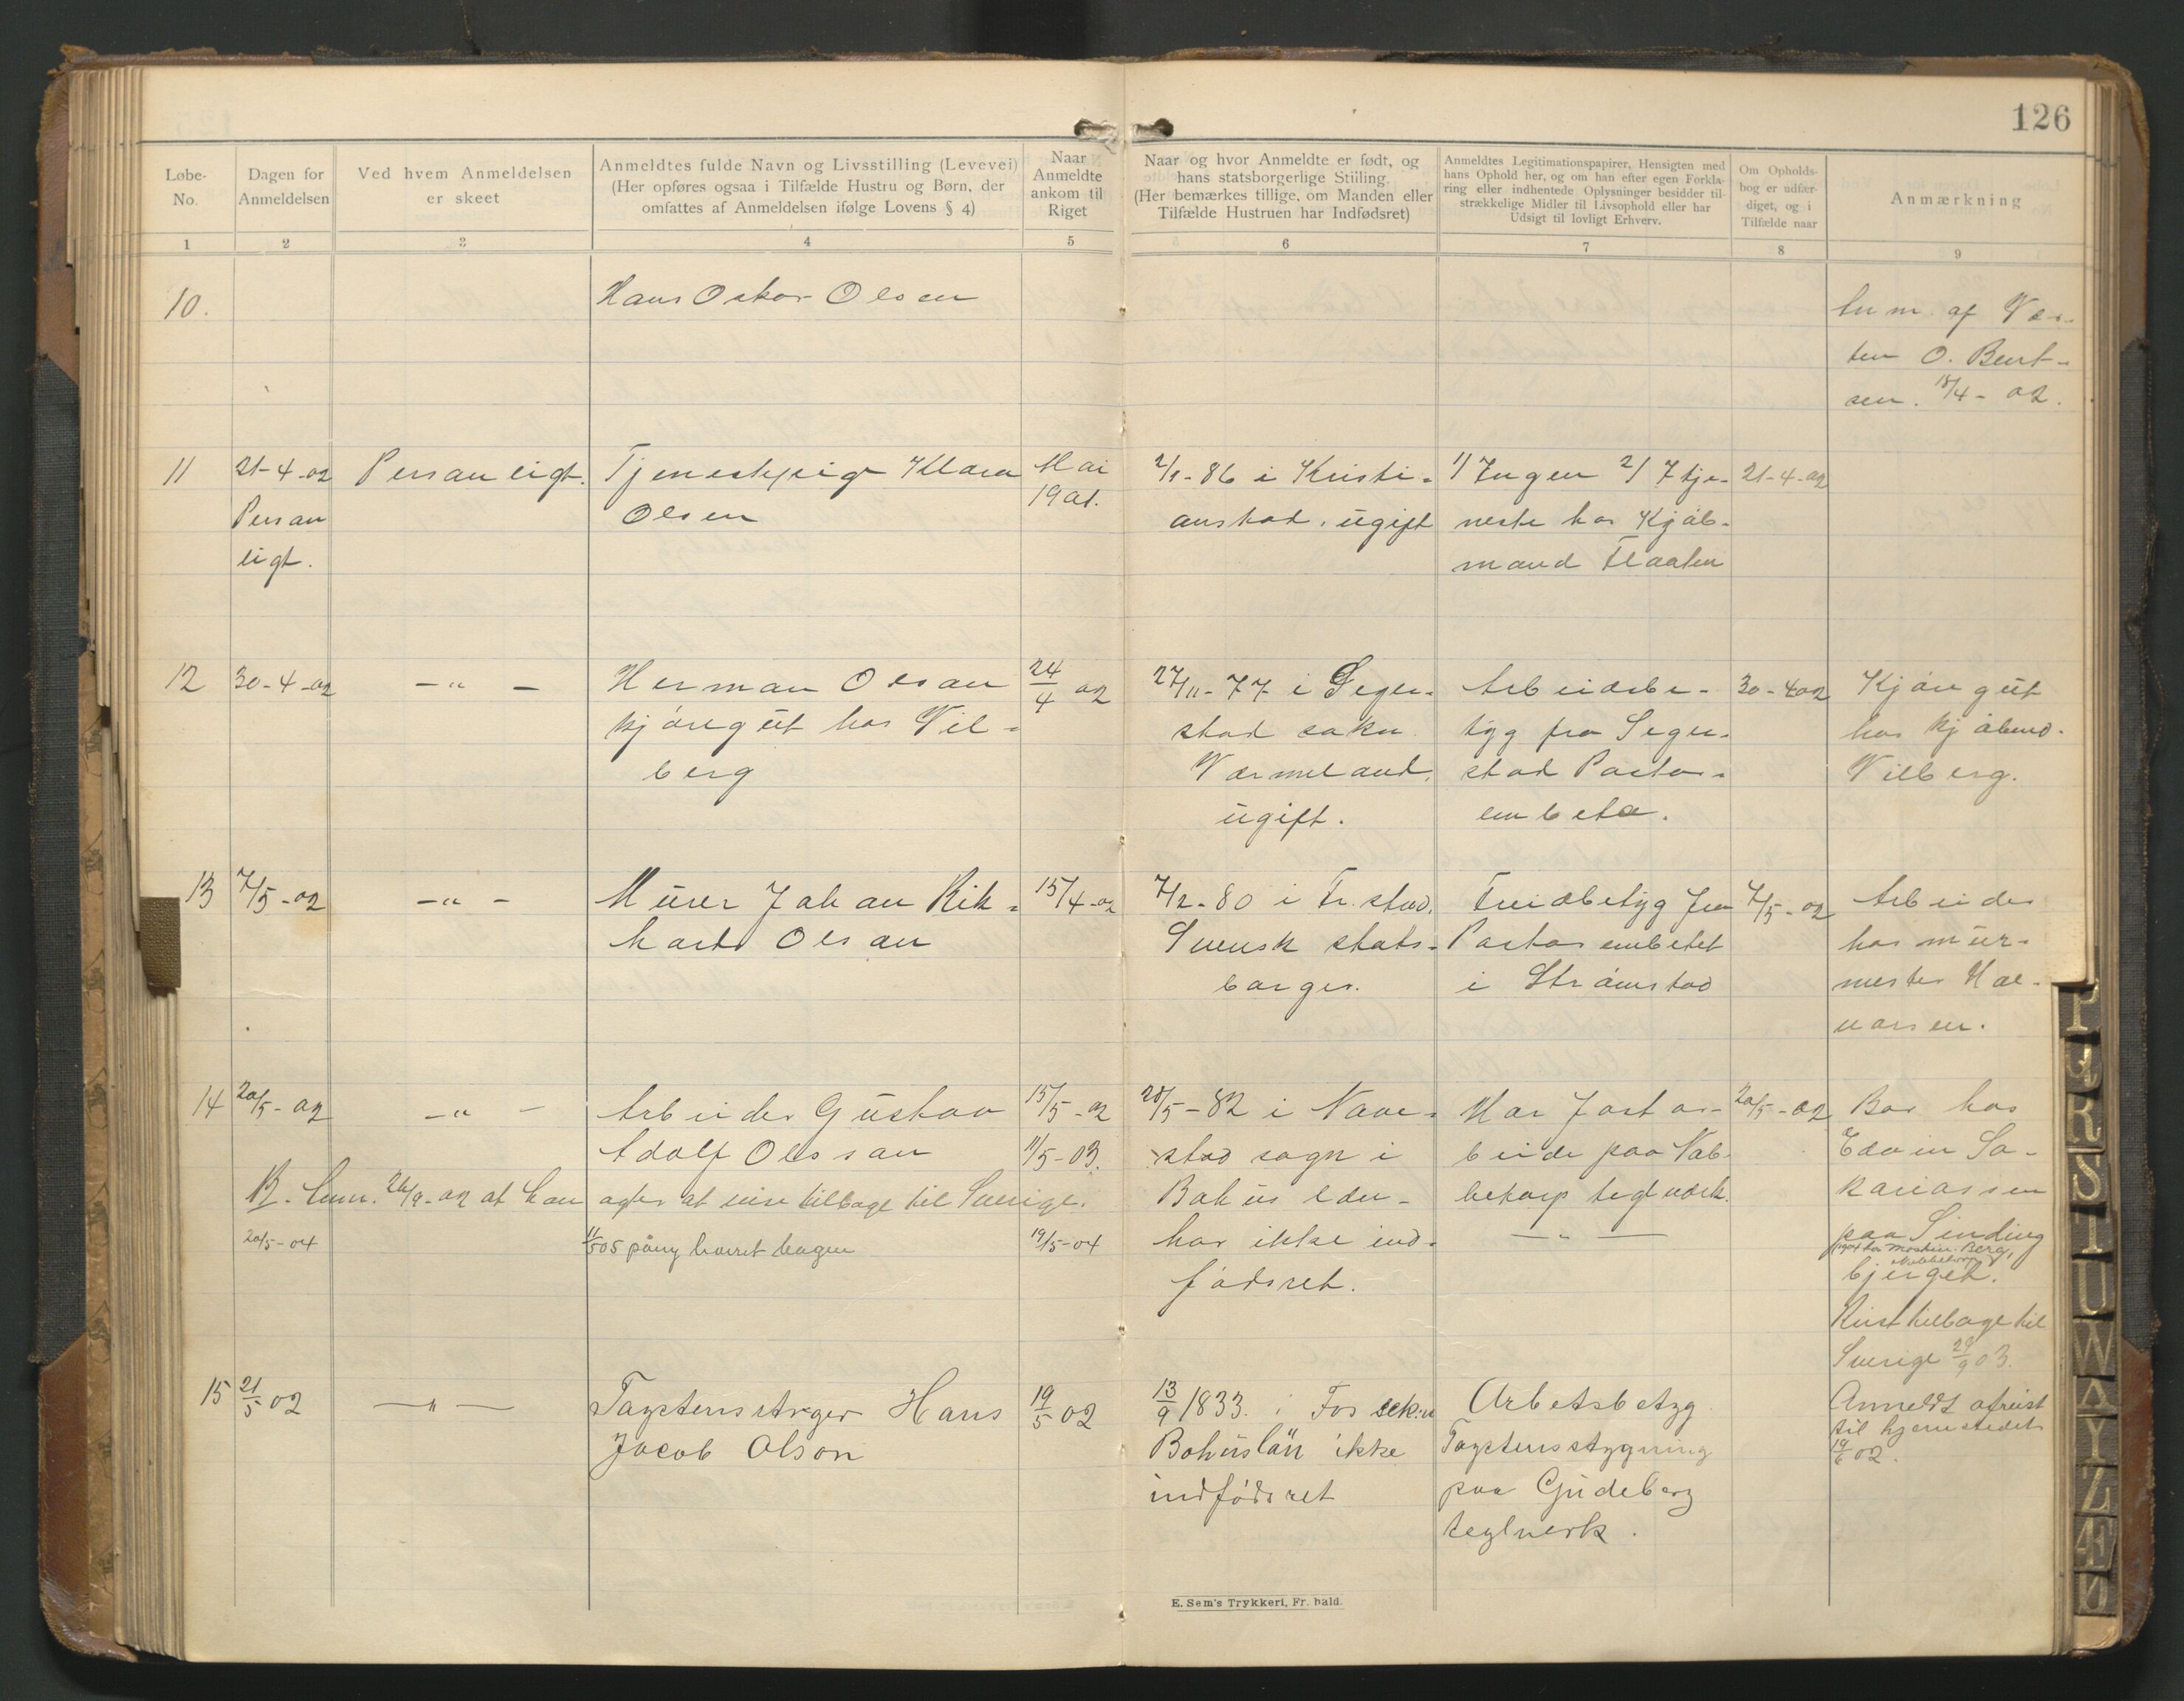 126
Løbe-
No.
Dagen for
Anmeldelsen
Ved hvem Anmeldelsen
er skeet
Anmeldtes fulde Navn og Livsstilling (Levevei)
(Her opføres ogsaa i Tilfælde Hustru og Børn, der
omfattes af Anmeldelsen ifølge Lovens § 4)
Naar
Anmeldte
ankom til
Riget
Naar og hvor Anmeldte er født, og
hans statsborgerlige Stiiling.
(Her bemærkes tillige, om Manden eller
Tilfælde Hustruen har Indfødsret)
Anmeldtes Legitimationspapirer, Hensigten med
hans Ophold her, og om han efter egen Forkla-
ring eller indhentede Oplysninger besidder til-
strækkelige Midler til Livsophold eller har
Udsigt til lovligt Erhverv.
Om Opholds-
bog er udfær-
diget, og i
Tilfælde naar
Anmærkning
1 2 3 4 5 6 7 8 9
10.
Hans Oskar Olsen
af Vær-
ten O. Bent-
sen. 18/4 - 02.
11
21-4-02
Person
ligt.
Personligt.
Tjenestepige Klara
Olsen
Mai
1901.
2/1-86 i Kristi-
anstad. ugift
1/ Ingen 2/ I tje-
neste hos Kjøb-
mand Flaaten
21-4-02
12
30-4-02
-"-
Herman Olsan
kjøregut hos Vil-
berg
24/4 02
27/11-77 i Seger-
stad sokn
Værmeland,
ugift.
Arbeidsbe-
tyg fra Seger-
stad Pastor-
embete.
30-4 02
Kjøregut
hos kjøbmd.
Vilberg.
13
7/5-02
-"-
Murer Johan Rik-
hard Olsan
15/4-02
7/2-80 i Fr.stad.
Svensk stats-
borger.
Freidbetyg fra
Pastorembetet
i Strømstad
7/5-02
Arbeider
hos mur-
mester Hal-
vorsen.
14
20/5-02
-"-
Arbeider Gustav
Adolf Olssan
15/5-02
11/5-03.
28/5-82 i Nave-
stad sogn i
Bohus len-
har ikke ind-
fødsret.
Har fast ar-
beide paa Nab-
betorp teglverk.
-"-
20/5-02
Bor hos
Edvin Sa-
kariassen
paa Sinding
1904 hos maskin. Berg,
Nabbetorp
bjerget.
Reist tilbage til
Sverige 29/9 03.
26/9-02 at han agter at reise tilbage til Sverige.
20/5-04
11/5 05 påny bogen
19/5-04
15
21/5 02
-"-
Tagstensstryger Hans
Jacob Olson
19/5 02
13/9 1833. i Fos sok:n
Bohuslän ikke
indfødsret
Arbetsbetyg
Tagstensstrygning
paa Gudeberg
teglverk.
Anmeldt afreist
til hjemstedet
19/6 02.
E. Sem's Trykkeri, Fr. hald.
P
R
S
T
U
W
A
Y
Z
Æ
Ø